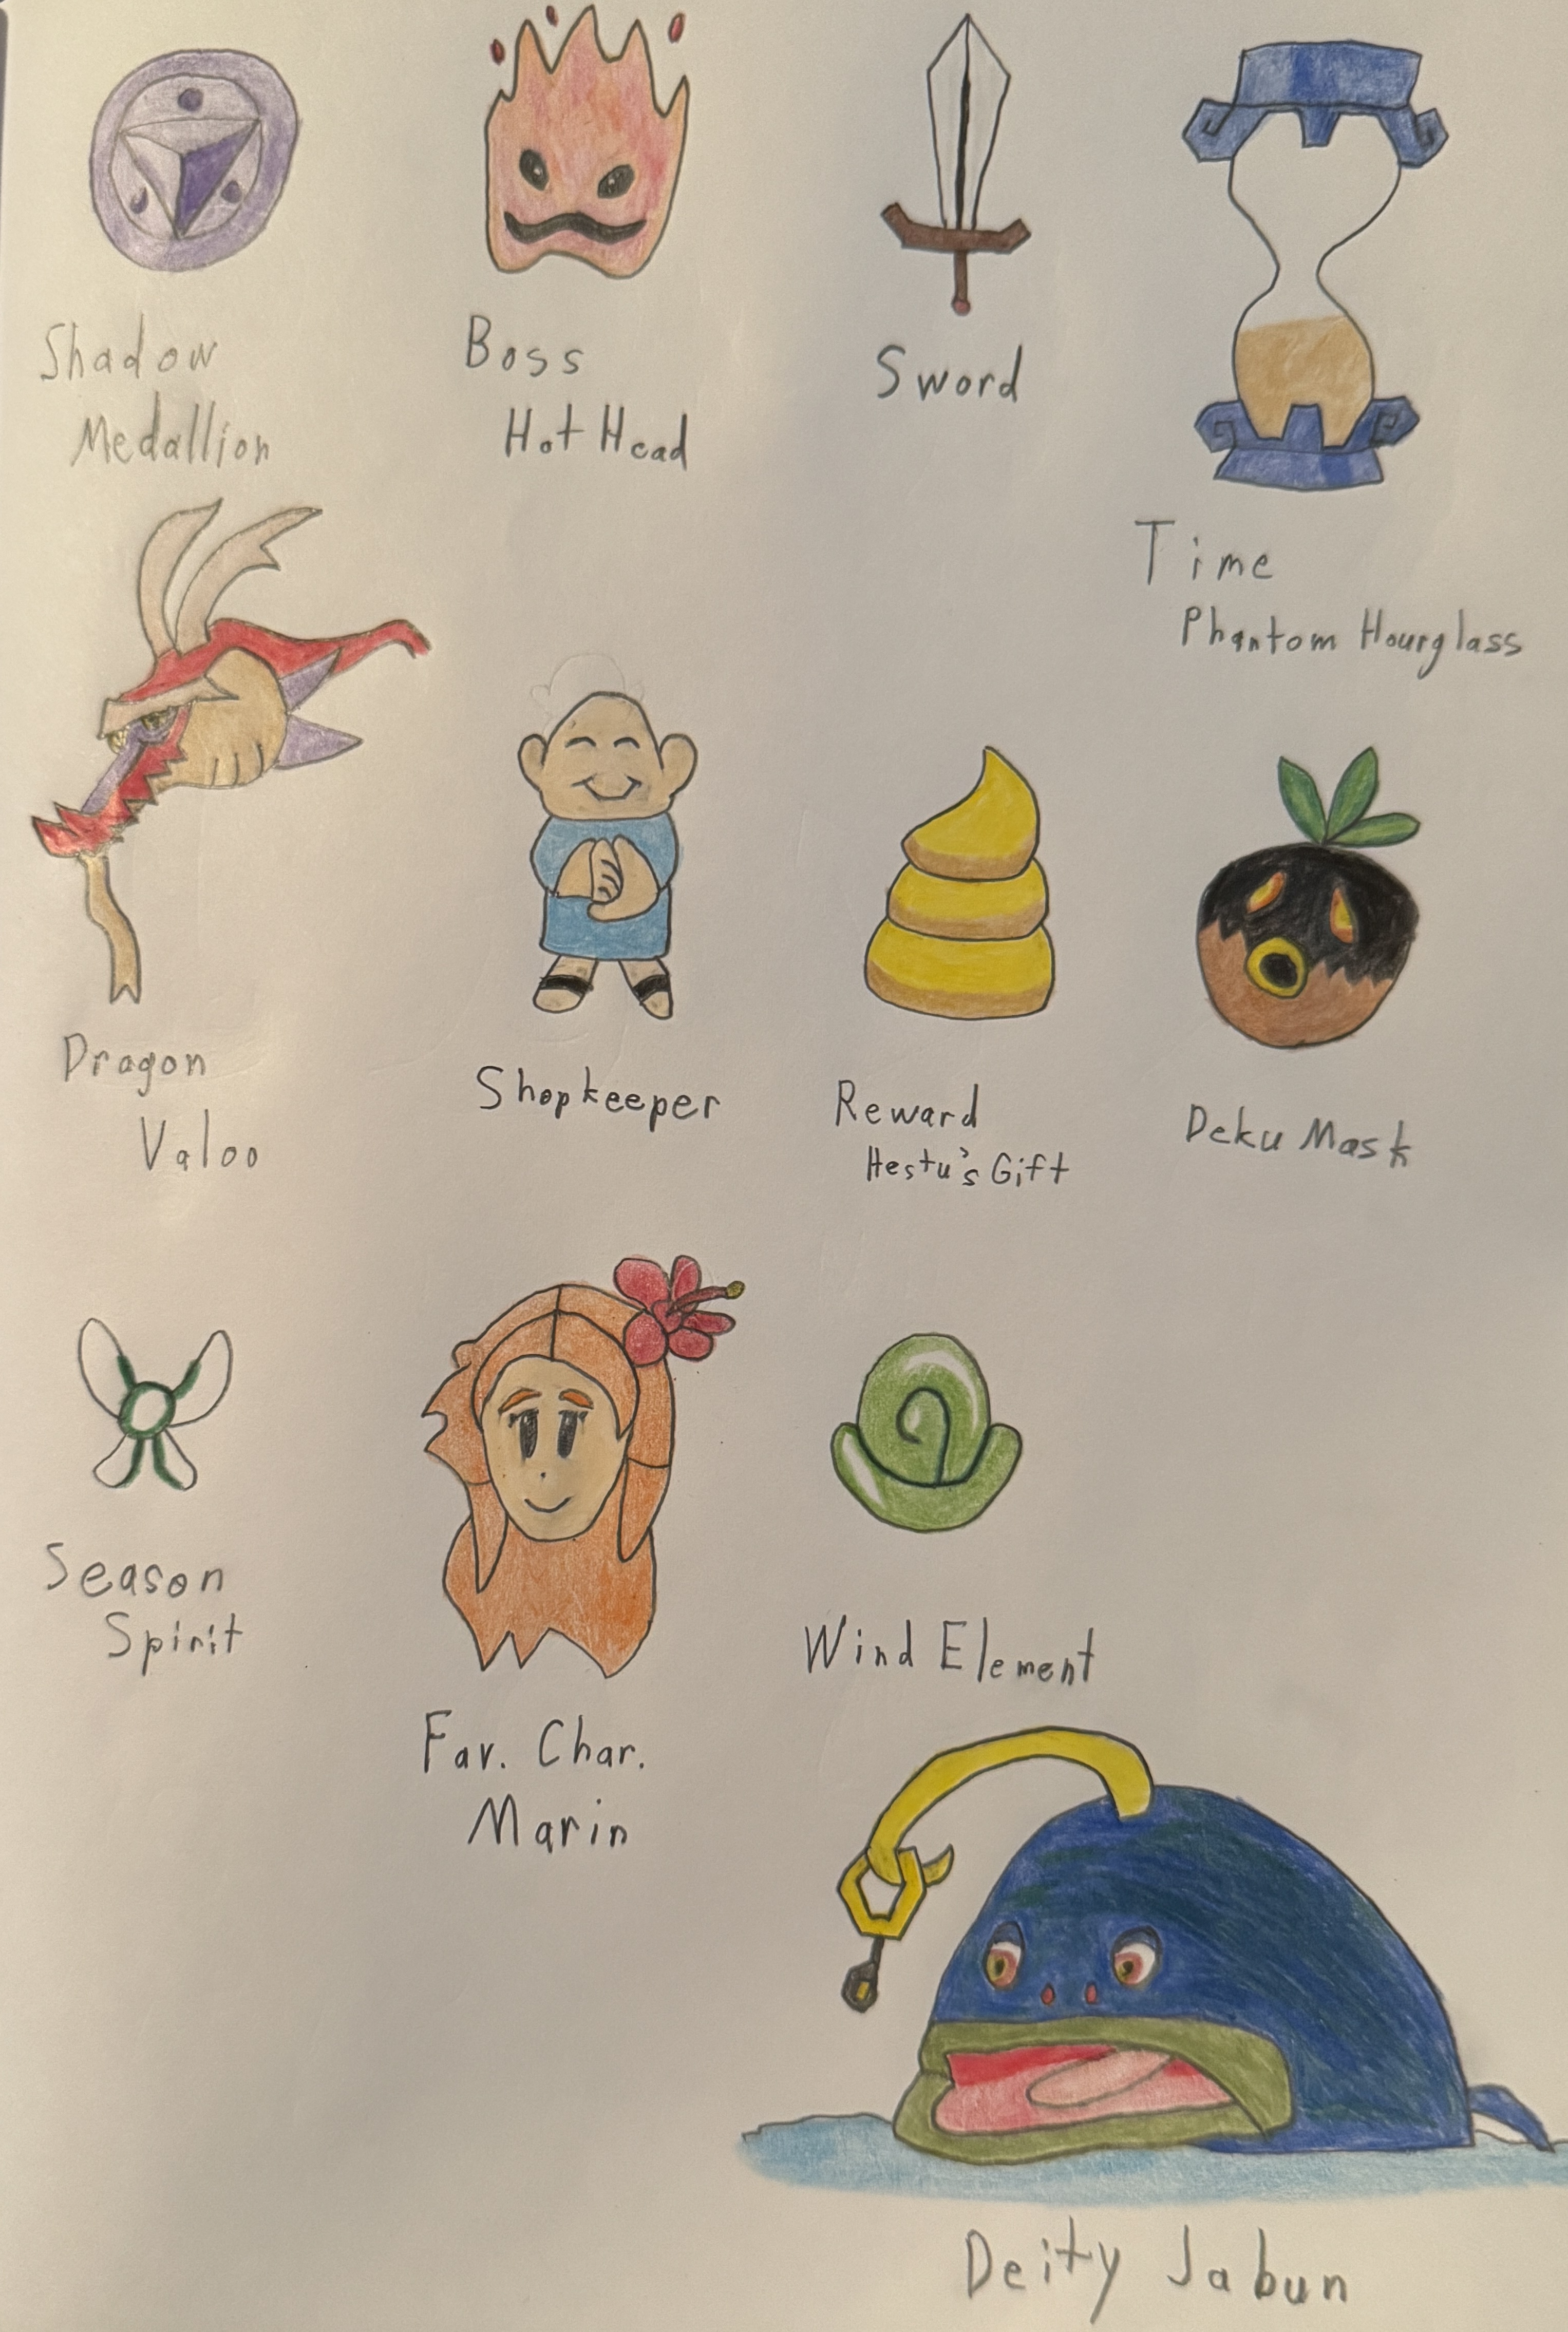 Shadow
Medallion
Boss
Hot Head
Sword
Time
Phantom Hourglass
Dragon
Valoo
Shopkeeper
Reward
Hestu's Gift
Deku Mask
Season
Spirit
Fav. Char.
Marin
Wind Element
Deity Jabun